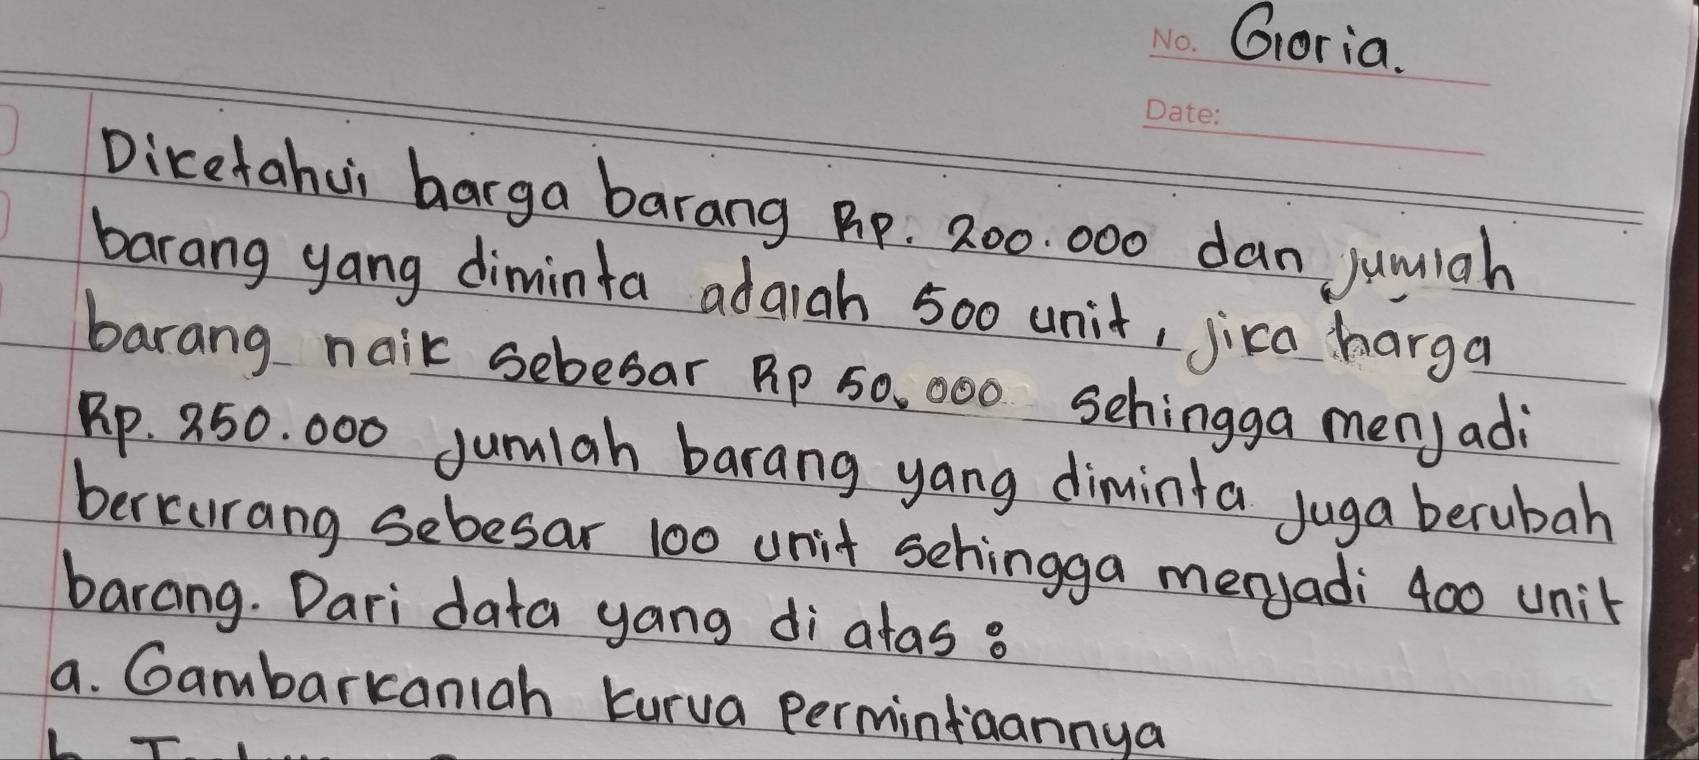 No. Gloria.
Date:
Diketahui harga barang Rp. 200.000 dan jumlah
barang yang diminta adalah 500 unit, jika harga
barang naik sebesar Rp 50.000 sehingga menjadi
Rp. 250.000 jumlah barang yang diminta juga berubah
berkurang sebesar 100 unit sehingga menjadi 400 unit
barang. Dari data yang di atas :
a. Gambarkanlah kurva permintaannya